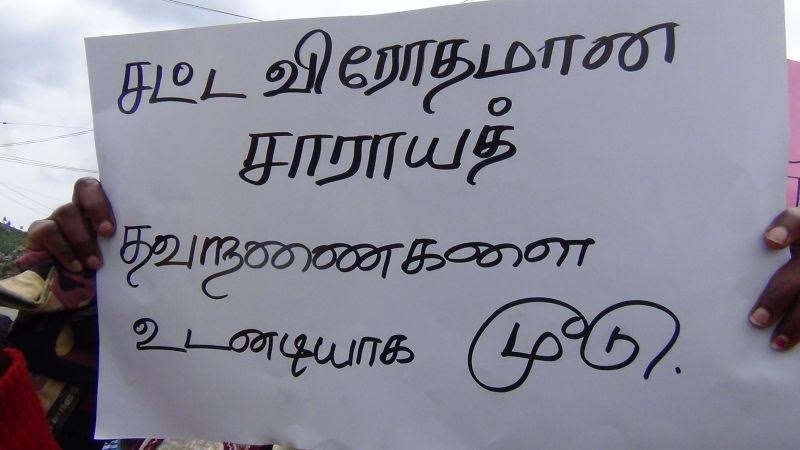 சட்ட விரோதமான
சாராயத்
தவறணைகளை
உடனடியாக மூடு.